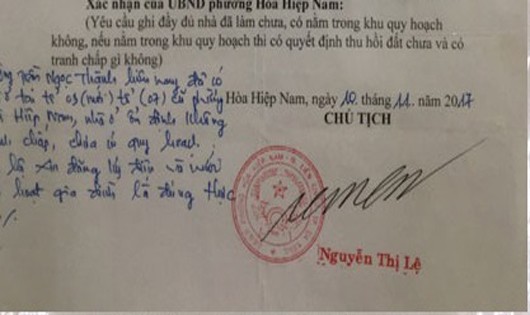 Xác nhận của UBND phường Hòa Hiệp Nam:
(Yêu cầu ghi đầy đủ nhà đã làm chưa, có nằm trong khu quy hoạch
không, nếu nằm trong khu quy hoạch thì có quyết định thu hồi đất chưa và có
tranh chấp gì không)
Trần Ngọc Thành hiện nay đã có
tổ (cũ) phường
Hiệp Nam, nhà ở ổn định không
chấp, chưa quy hoạch
là xin đăng ký điện và nước
hoạt gia đình là đúng
Hòa Hiệp Nam, ngày 10. tháng 11. năm 2017
CHỦ TỊCH
Nguyễn Thị Lệ